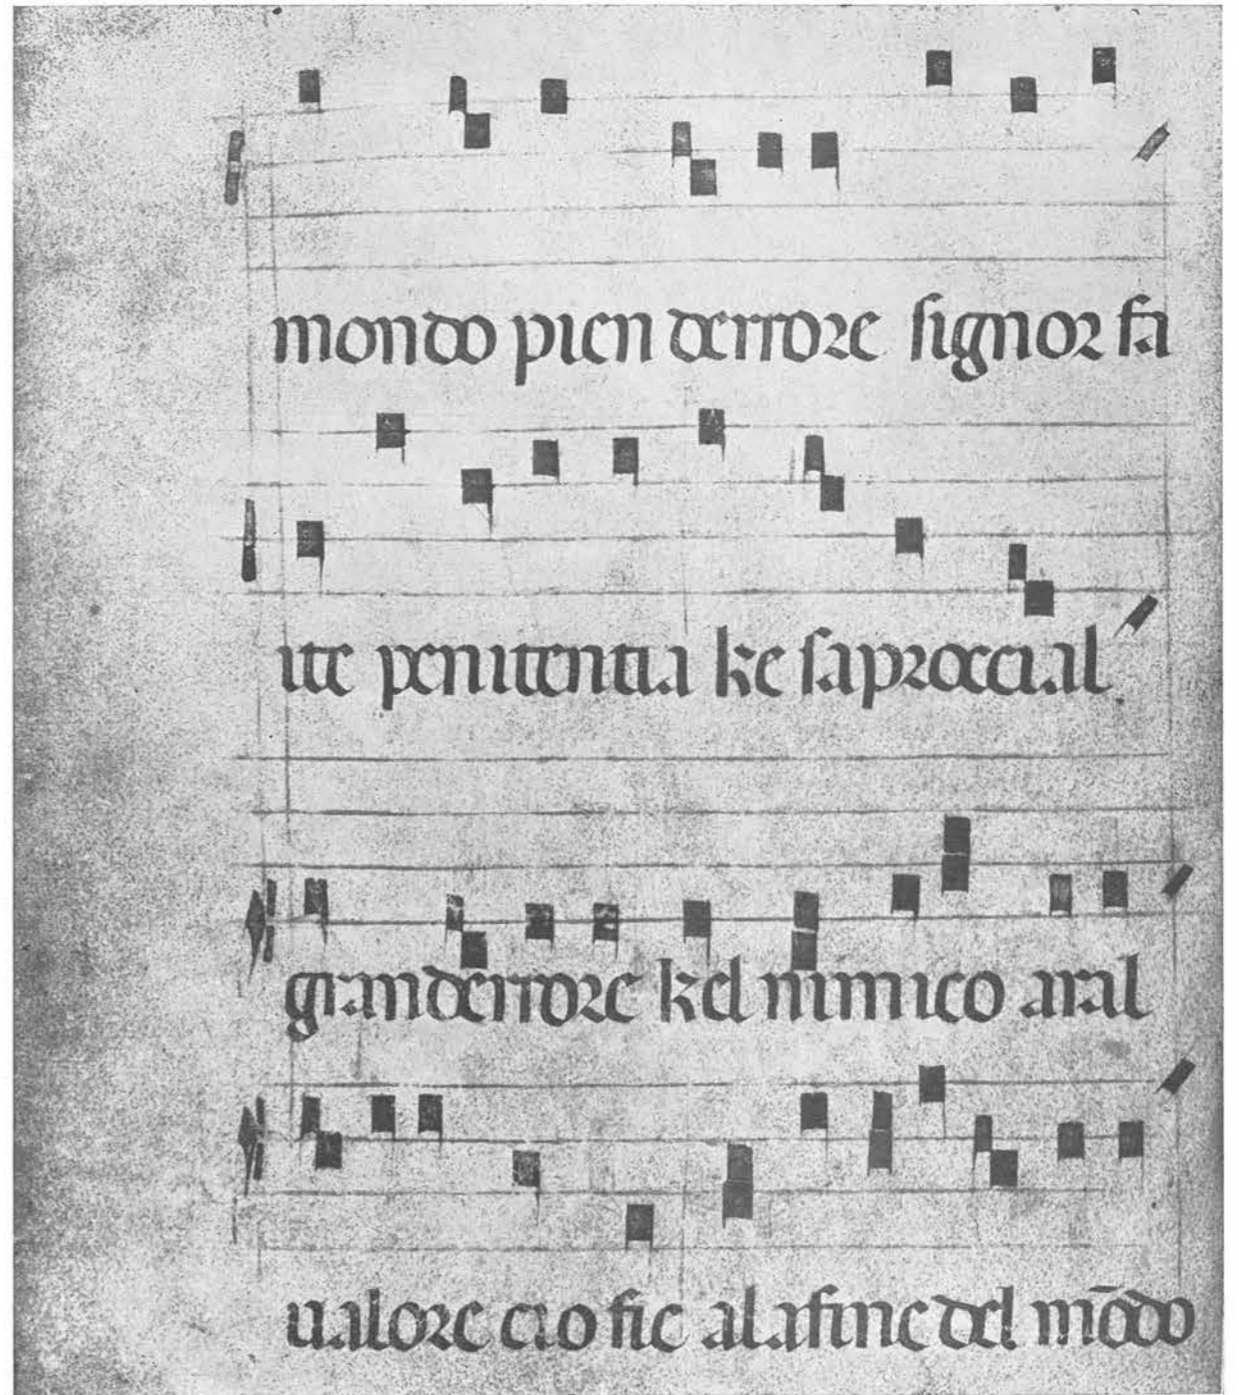 mondo pien derrore signor fa
ite penitentia ke saproccia al
grand errore kel nimico aral
ualore cio fie alafine del mōdo